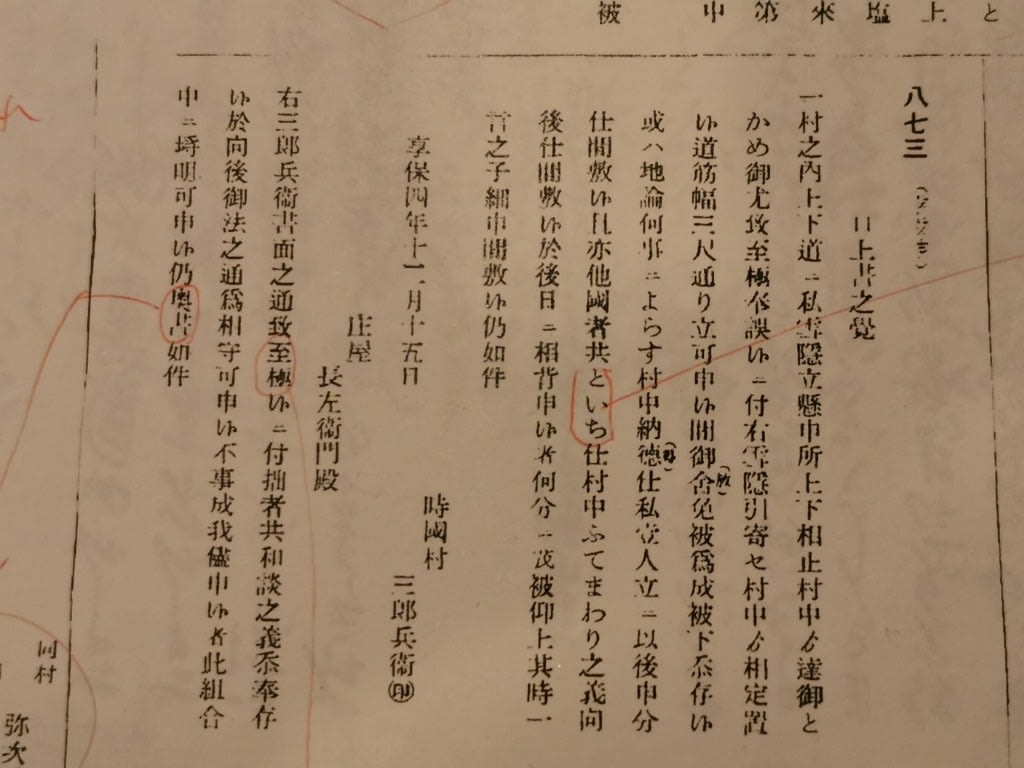 と
上
塩
來
第
中
被
八七三
口上書之覺
一村之内上下道ニ私雪隱立懸申所上下相止村中ゟ達御と
かめ御尤致至極奉誤候ニ付右雪隱引寄せ村中ゟ相定置
候道筋幅三尺通り立可申候間御舍免被爲成被下忝存候
(赦)
或ハ地論何事ニよらす村中納德仕私立人立ニ以後申分
(得)
仕間敷候且亦他國者共といち仕村中ふてまわり之義向
後仕間敷候於後日ニ相背申候者何分ニ茂被仰上其時一
言之子細申間敷候仍如件
享保四年十二月十五日
時國村
三郎兵衞㊞
庄屋
長左衞門殿
右三郎兵衞書面之通致至極候ニ付拙者共和談之義忝奉存
候於向後御法之通爲相守可申候不事成我儘申候者此組合
申ニ埓明可申候仍奥書如件
同村
弥次